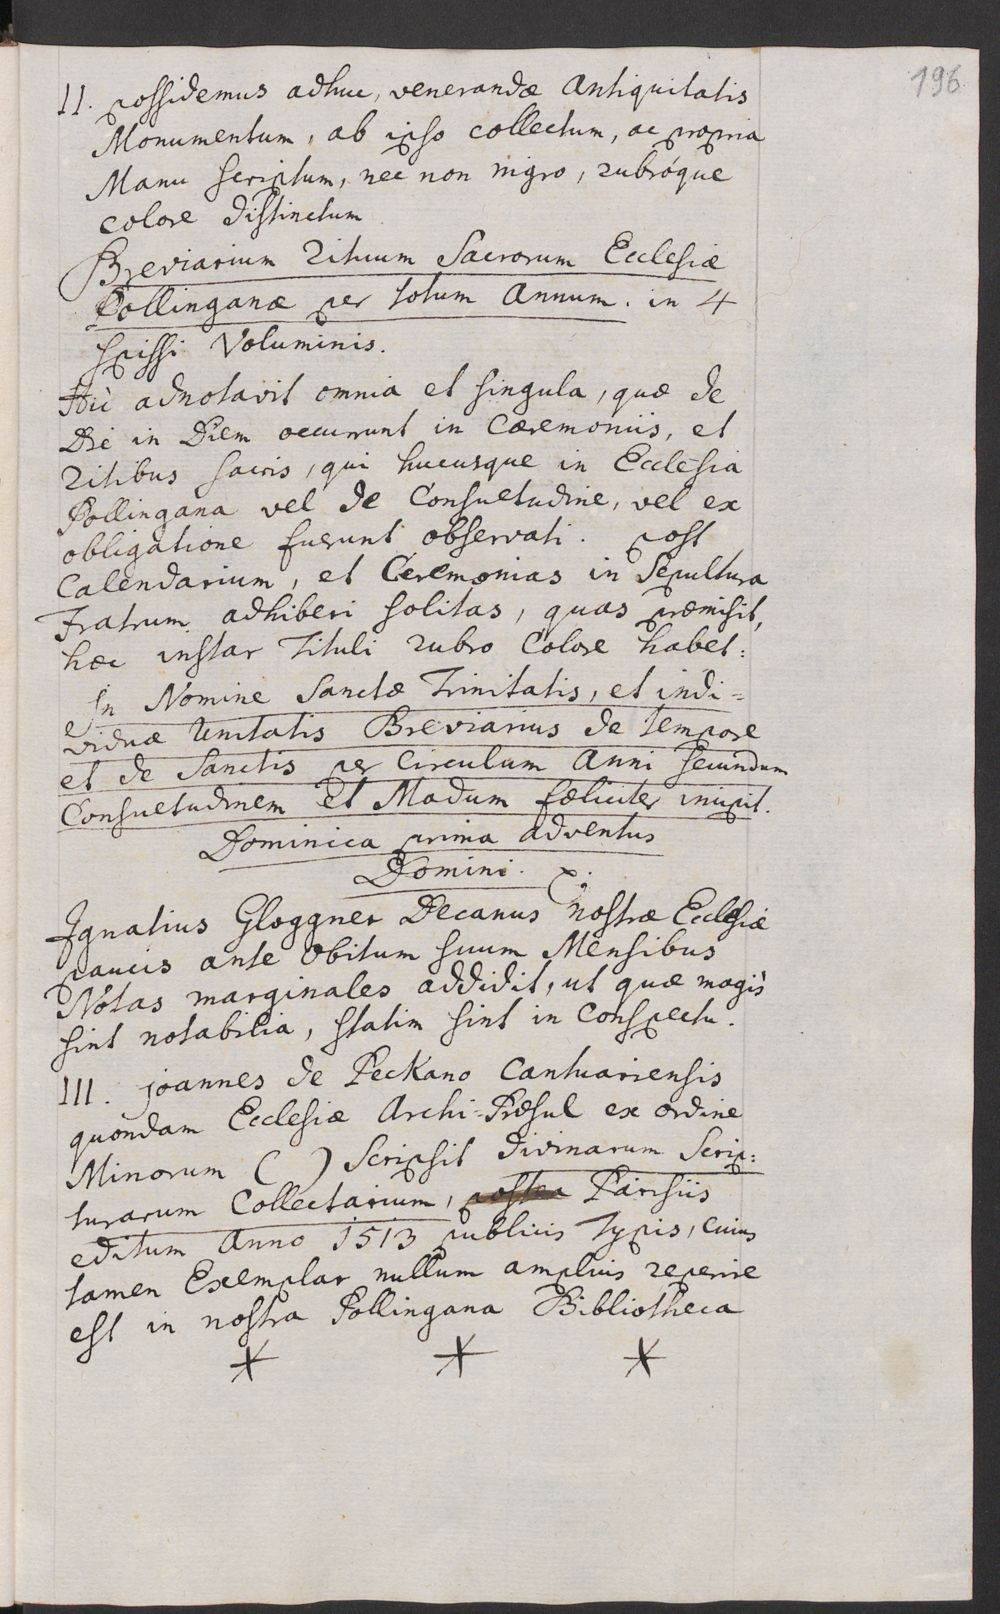 196
II. possidemus adhuc, venerandæ Antiquitatis
Monumentum, ab ipso collectum, ac propria
Manu scriptum, nec non nigro, rubróque
colore distinctum
Breviarium Rituum Sacrorum Ecclesiæ
Pollinganæ per totum Annum. in 4
spissi Voluminis.
Hìc adnotavit omnia et singula, quæ de
Die in Diem occurrunt in Cæremoniis, et
Ritibus sacris, qui hucusque in Ecclesia
Pollingana vel de Consuetudine, vel ex
obligatione fuerunt observati. post
Calendarium, et Ceremonias in Sepultura
Fratrum adhiberi solitas, quas præmisit,
hæc instar Tituli rubro Colore habet:
In Nomine Sanctæ Trinitatis, et indi=
viduæ Unitatis Breviarius de tempore
et de Sanctis per Circulum Anni secundum
Consuetudinem et Modum fæliciter incipit.
Dominica prima adventus
Domini.
Ignatius Gloggner Decanus nostræ Ecclesiæ
paucis ante Obitum suum Mensibus
Notas marginales addidit, ut quæ magis
sint notabilia, statim sint in Conspectu.
III. Joannes de Peckano Cantuariensis
quondam Ecclesiæ Archi-Præsul ex ordine
Minorum ( ) Scripsit divinarum Scrip:
turarum Collectarium, postea Parisiis
editum Anno 1513 publicis Typis, cuius
tamen Exemplar nullum amplius reperire
est in nostra Pollingana Bibliotheca
* * *